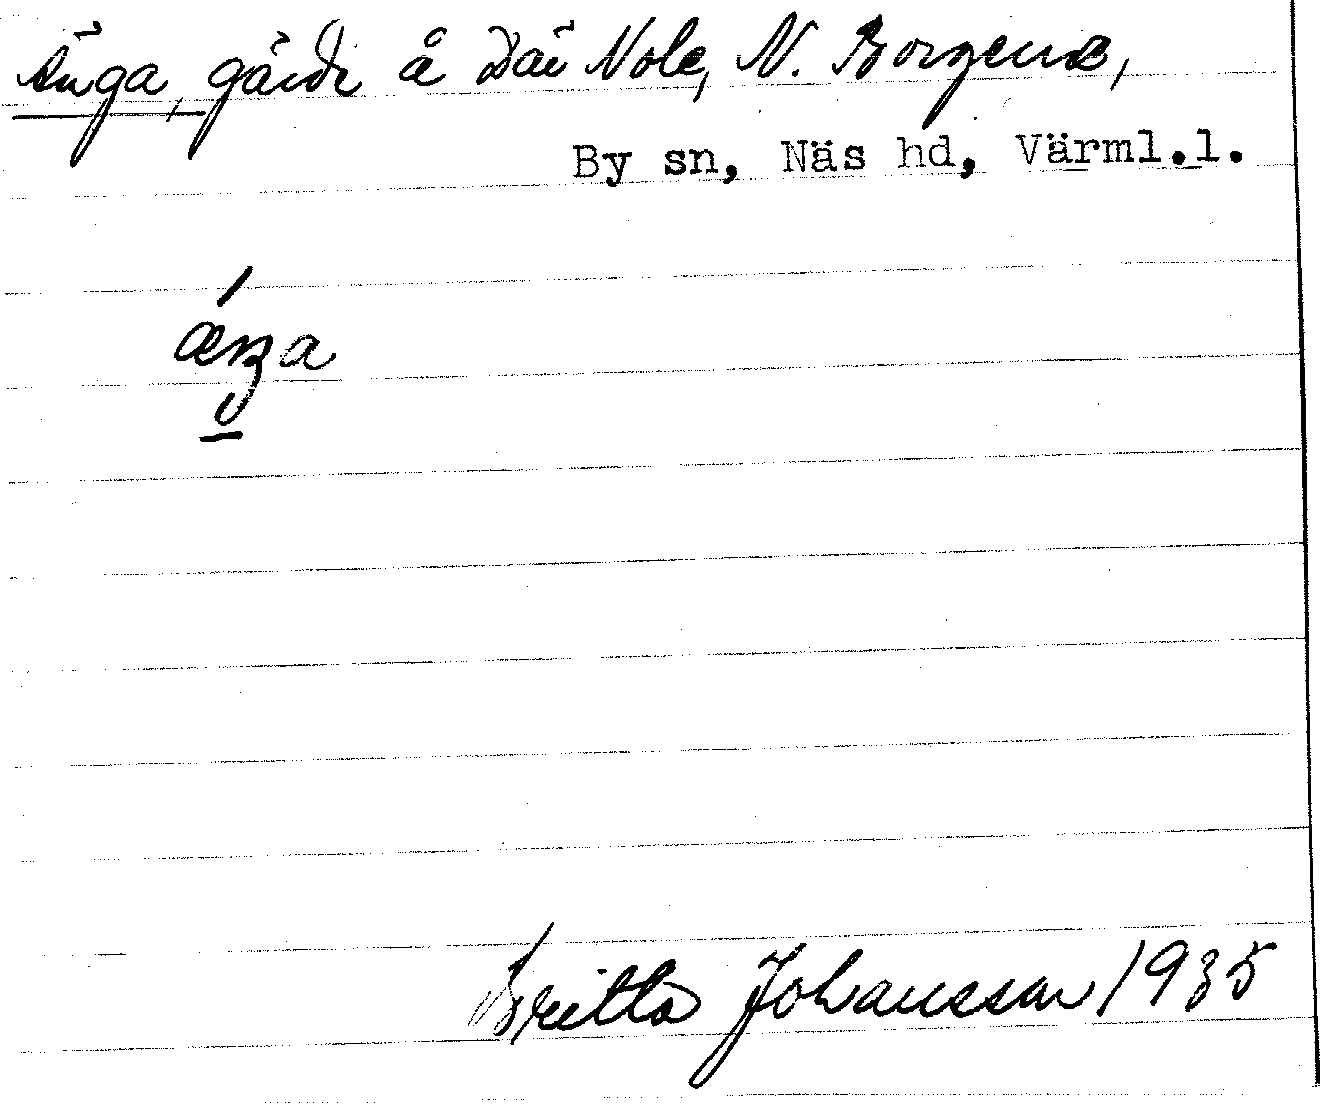 Änga, gärde å Där Nole, N. Borgeux,
By sn, Näs hd, Värml.l.
Britta Johansson 1935